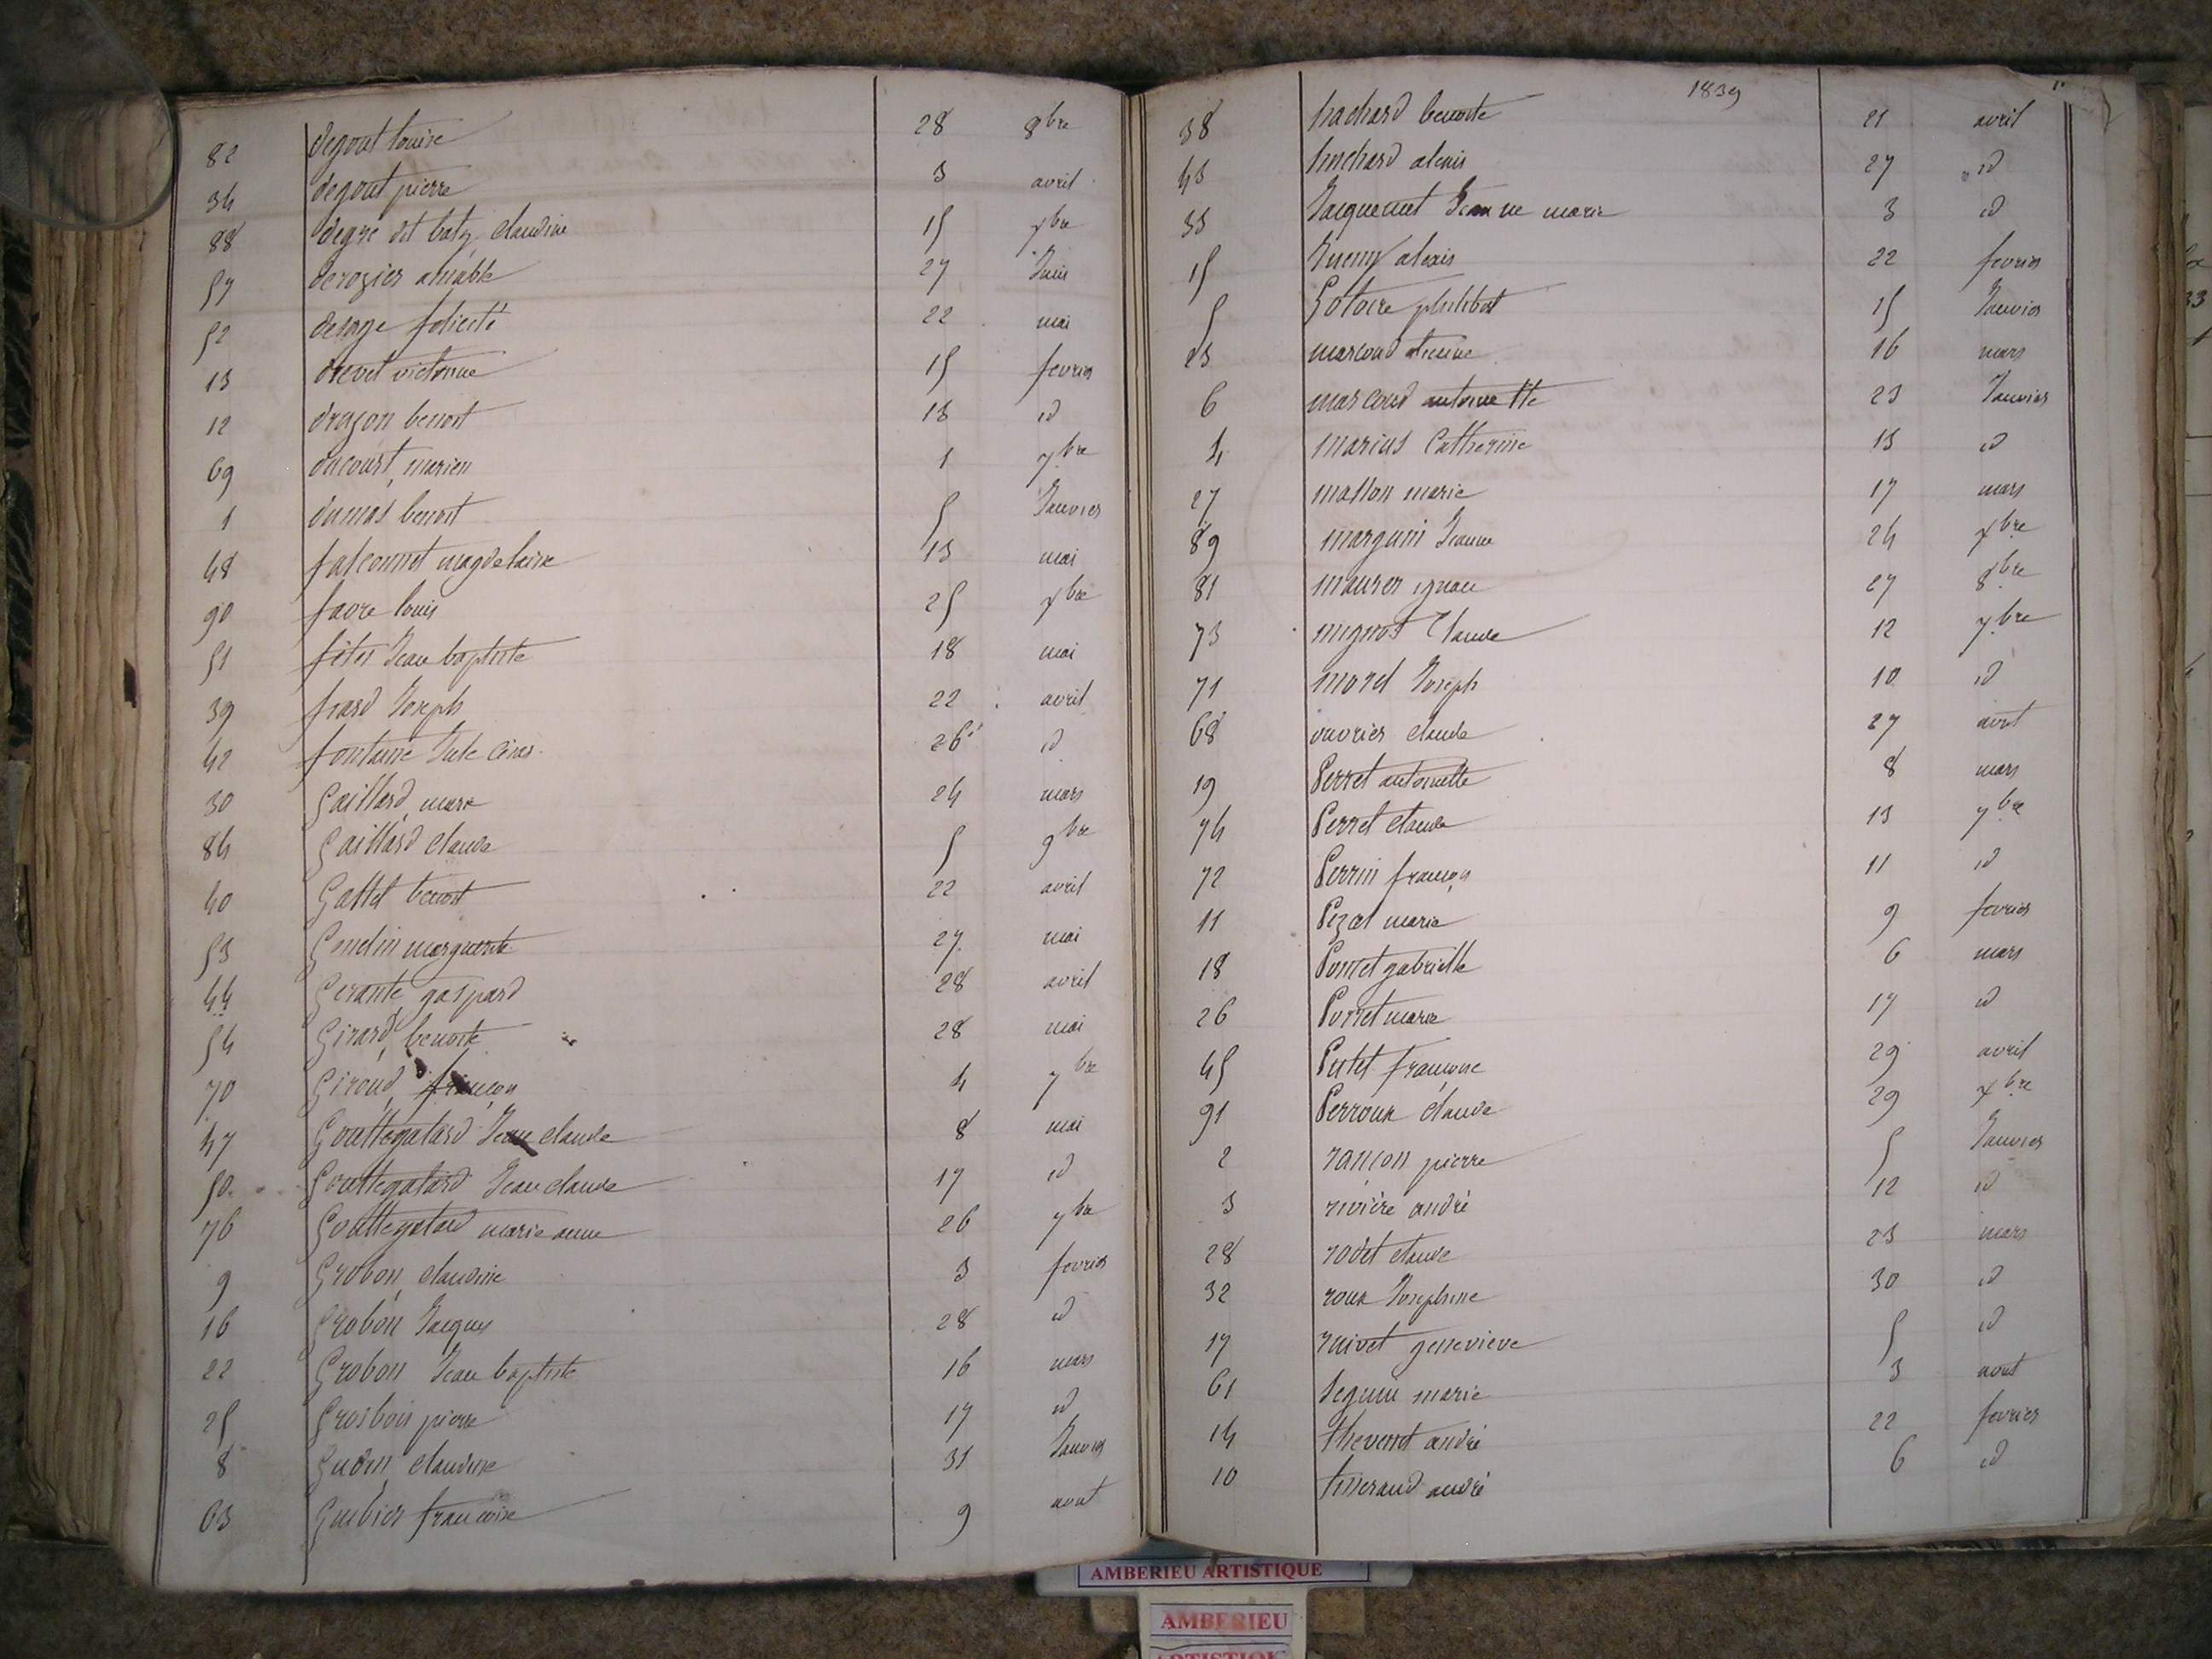 82 degout louise 28 8bre
34 degout pierre 3 avril
88 degre dit baty claudine 15 xbre
57 derozier aimable 27 Juin
52 desage felicité 22 mai
13 drevet victorine 15 fevrier
12 dragon benoit 13 id
69 ducourt marien 1 7bre
1 dumas benoit 5 Janvier
48 falconnet magdelaine 13 mai
90 favre louis 25 xbre
51 Jean baptiste 18 mai
39 Joseph 22 avril
42 fontaine 26 id
30 Gaillard marie 24 mars
84 Gaillard claude 5 9bre
40 Gallet benoit 22 avril
53 Gendin marguerite 27 mai
44 Gerante gaspard 28 avril
54 Girard benoite 28 mai
70 Giroud françois 4 7bre
47 Gouttegatard Jean claude 8 mai
50 Gouttegatard Jean claude 17 id
76 Gouttegatard marie anne 26 7bre
9 Grobon claudine 3 fevrier
16 Grobon Jacques 28 id
22 Grobon Jean baptiste 16 mars
25 Grosbois pierre 17 id
8 Gudin claudine 31 Janvier
63 francoise 9 aout
1839
38 benoite 21 avril
43 alexis 27 id
33 Jacquemet Jeanne marie 3 id
15 Juemy alexis 22 fevrier
5 philibert 15 Janvier
23 marcoud etienne 16 mars
6 marcoud antoinette 23 Janvier
4 marius Catherine 13 id
27 marie 17 mars
89 marguin Jeanne 24 xbre
81 maurer ignace 27 8bre
73 mignot Claude 12 7bre
71 morel Joseph 10 id
68 ouvrier claude 27 aout
19 Perret antoinette 8 mars
74 Perret claude 13 7bre
72 Perrin françois 11 id
11 Pezat marie 9 fevrier
18 Poncet gabrielle 6 mars
26 Poncet marie 17 id
45 Putet françoise 29 avril
91 Perroux claude 29 xbre
2 rançon pierre 5 Janvier
3 rivière andré 12 id
28 rodet claude 23 mars
32 roux Josephine 30 id
17 ruivet genevieve 5 id
61 Seguin marie 3 aout
14 thevenet andré 22 fevrier
10 tisserand andré 6 id
AMBERIEU ARTISTIQUE
AMBERIEU
ARTISTIQUE